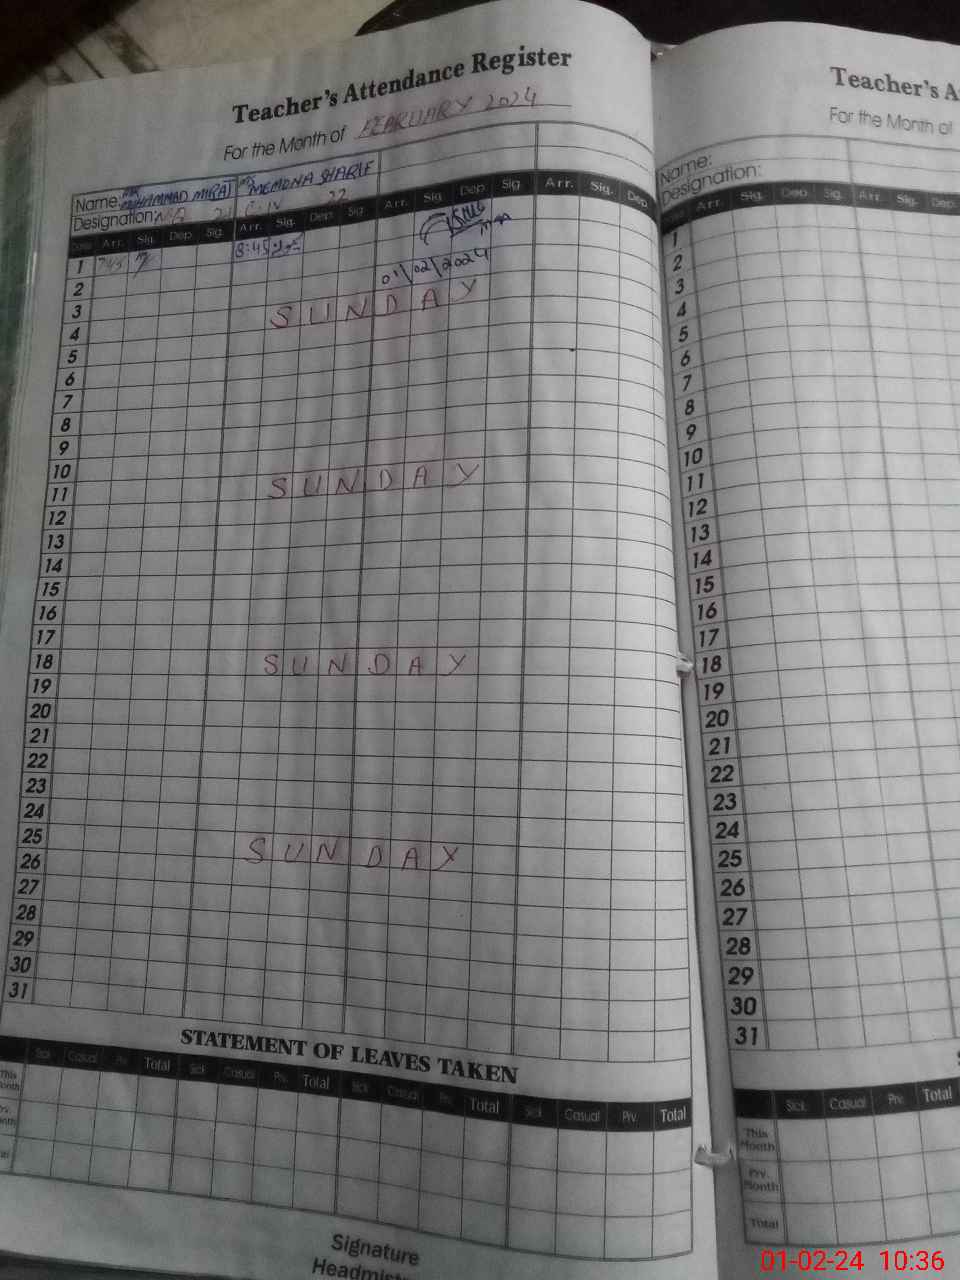 Teacher's Attendance Register
For the Month of FEBRUARY 2024
Name: MR MUHAMMAD MIRAJ MS MEMONA SHARIF
Designation: N/Q C-IV 22
Date Arr. Sig. Dep. Sig. Arr. Sig. Dep. Sig. Arr. Sig. Dep. Sig. Arr. Sig. Dep.
1 7:45 8:45
2 01/02/2024
3
4 SUNDAY
5
6
7
8
9
10
11 SUNDAY
12
13
14
15
16
17
18 SUNDAY
19
20
21
22
23
24
25 SUNDAY
26
27
28
29
30
31
STATEMENT OF LEAVES TAKEN
Sick Casual Prv. Total Sick Casual Prv. Total Sick Casual Prv. Total Sick Casual Prv. Total
This
Month
Prv.
Month
Signature
Teacher's A
For the Month of
Name:
Designation:
Date Arr. Sig. Dep. Sig. Arr. Sig. Dep.
1
2
3
4
5
6
7
8
9
10
11
12
13
14
15
16
17
18
19
20
21
22
23
24
25
26
27
28
29
30
31
Sick Casual Prv. Total
This
Month
Prv.
Month
Total
01-02-24 10:36